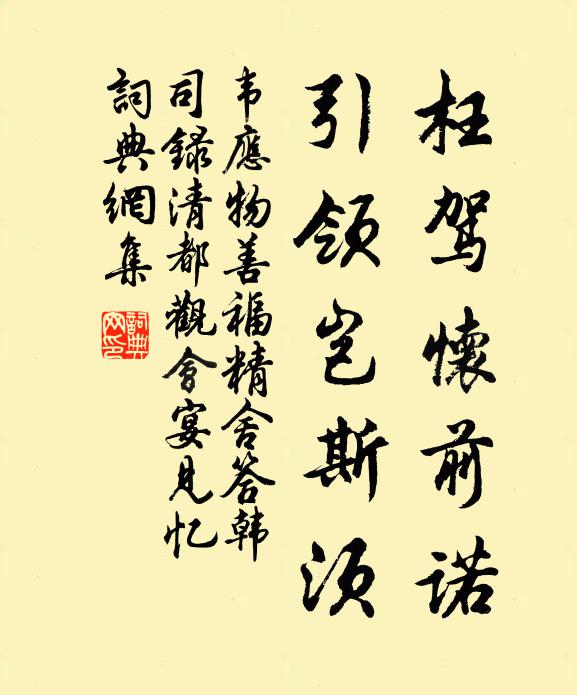 枉驾懷前诺
引领岂斯须
韦應物善福精舍答韩
司録清都觀會宴見忆
詞典網集
詞典
网印